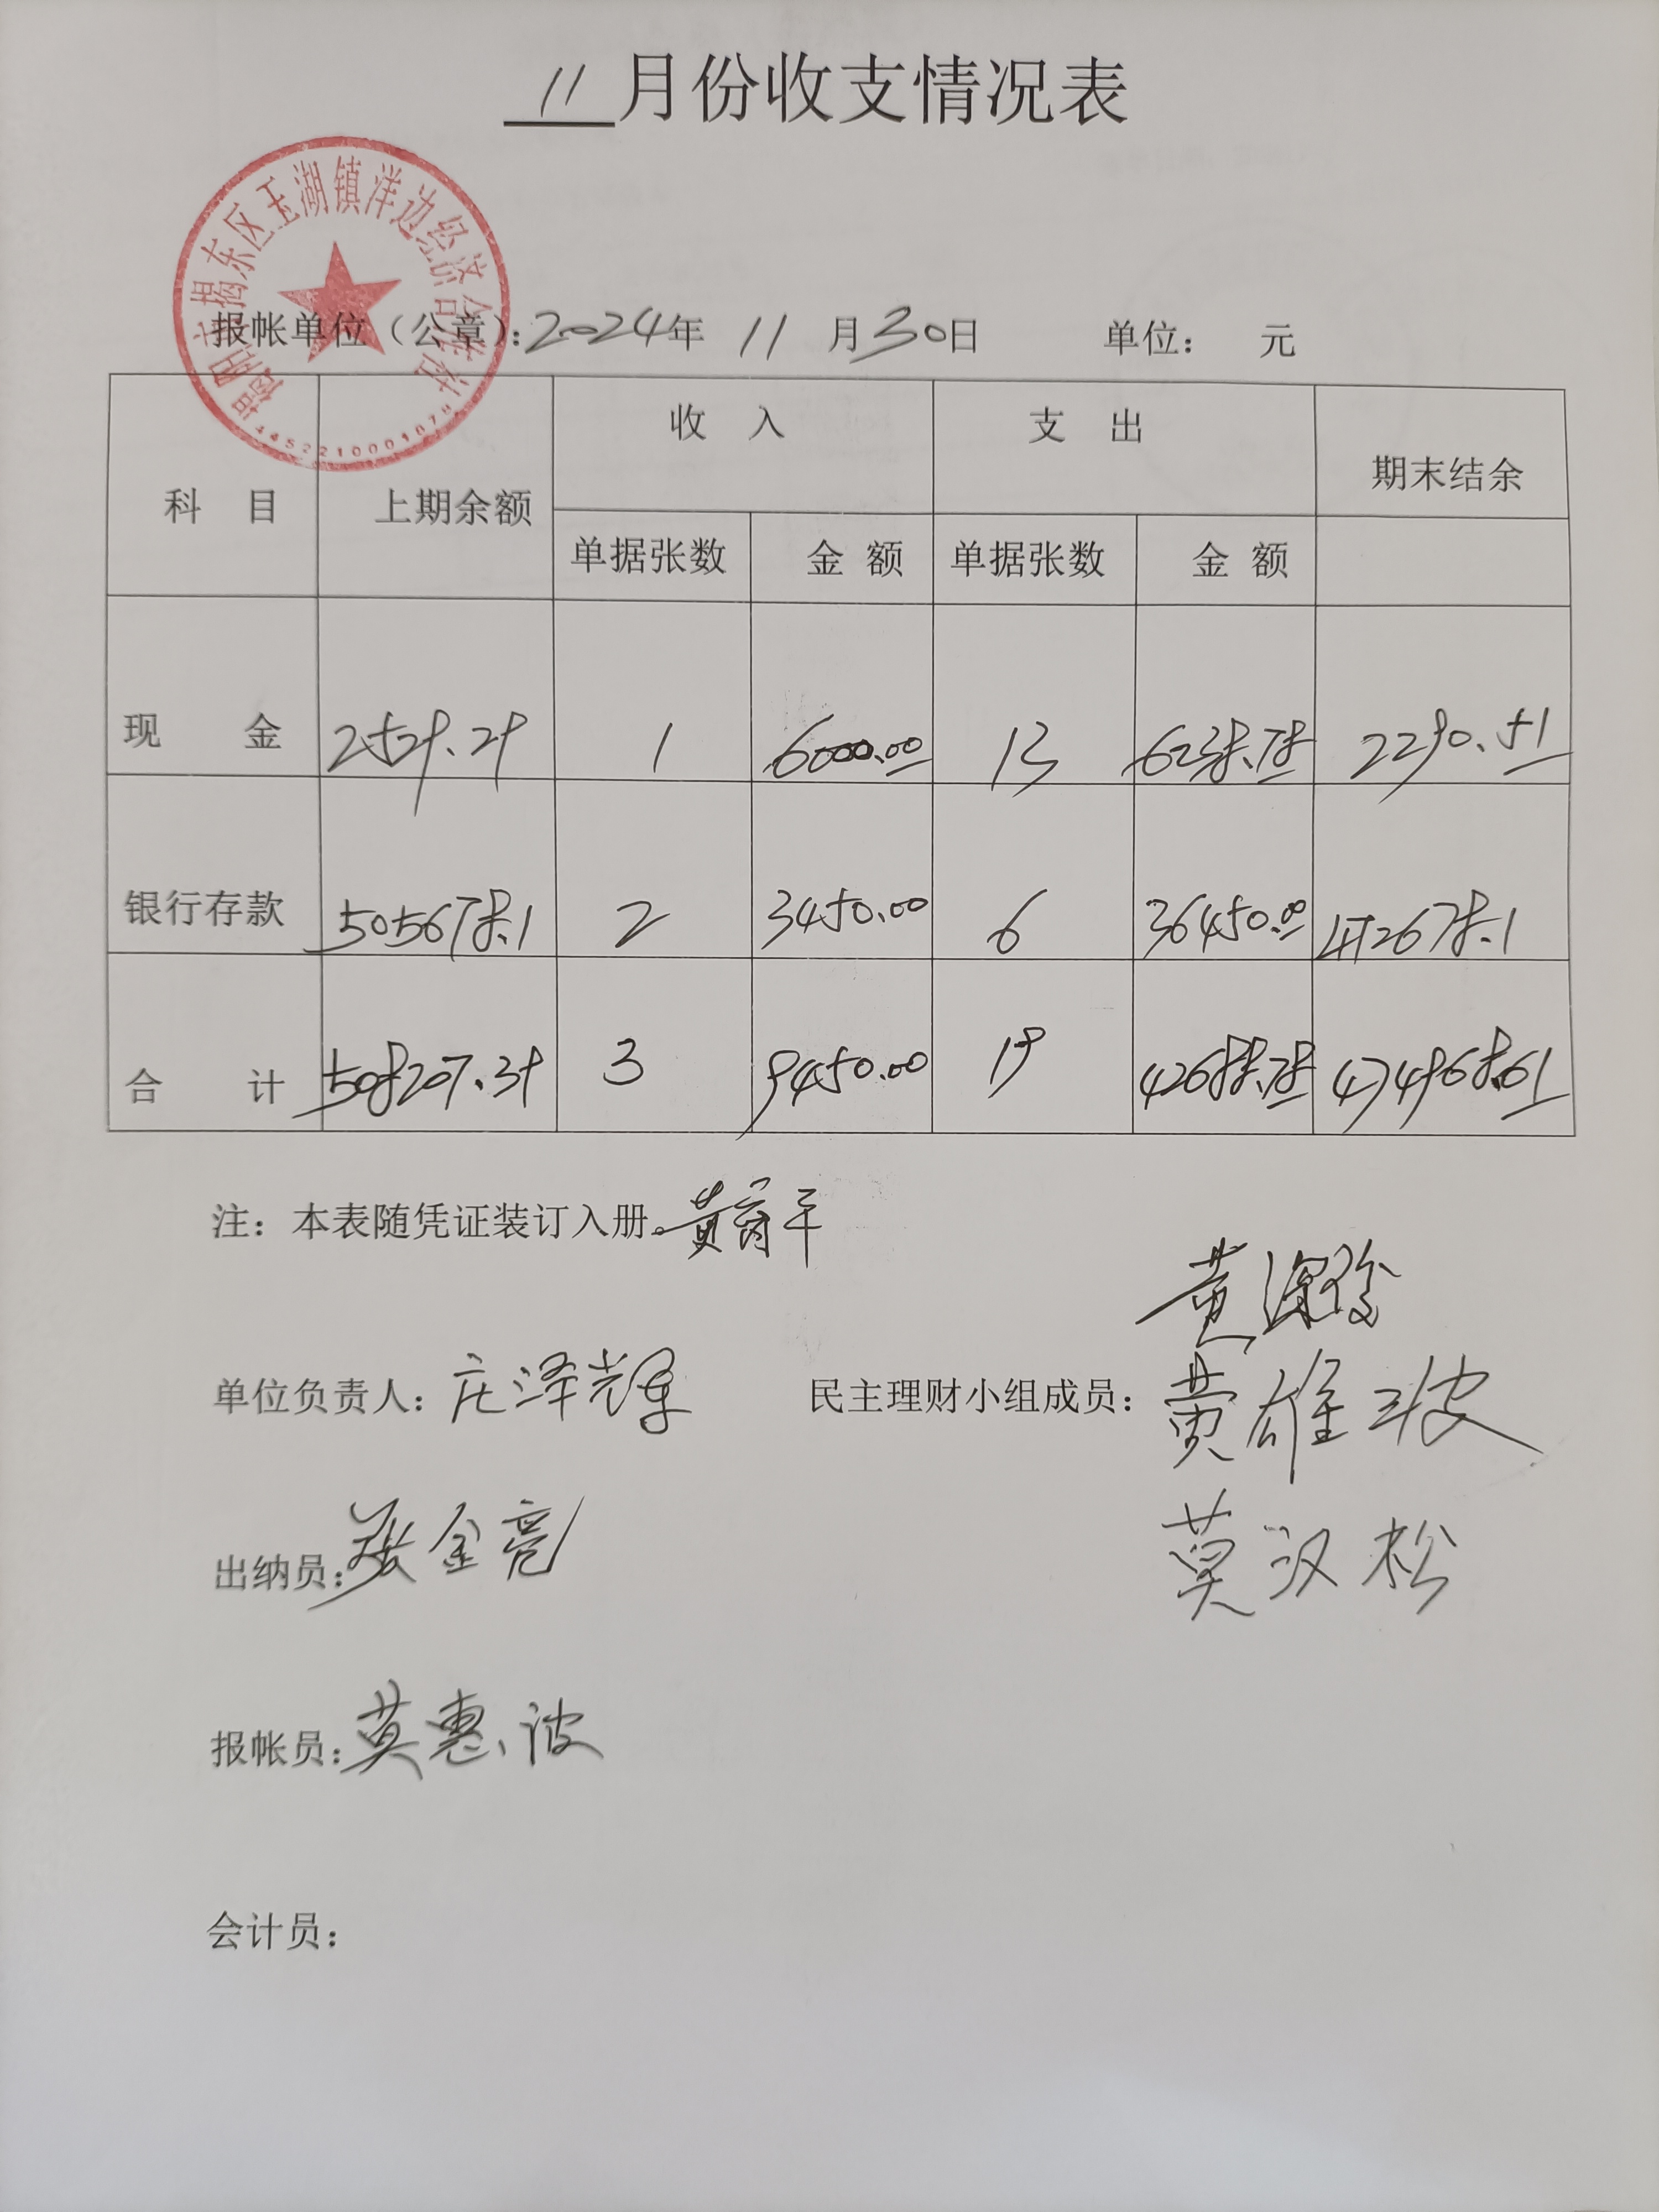 11月份收支情况表
揭阳市揭东区玉湖镇洋边经济合作社
报帐单位（公章）：2024年 11 月30日 单位： 元
科 目 上期余额 收 入 支 出 期末结余
单据张数 金 额 单据张数 金 额
现 金 2529.29 1 6000.00 13 6238.78 2290.51
银行存款 505678.1 2 3450.00 6 36450.00 472678.1
合 计 508207.39 3 9450.00 19 42688.78 474968.61
注：本表随凭证装订入册。
单位负责人：庄泽辉 民主理财小组成员：
黄雄波
出纳员：张金亮 莫汉松
报帐员：莫惠波
会计员：